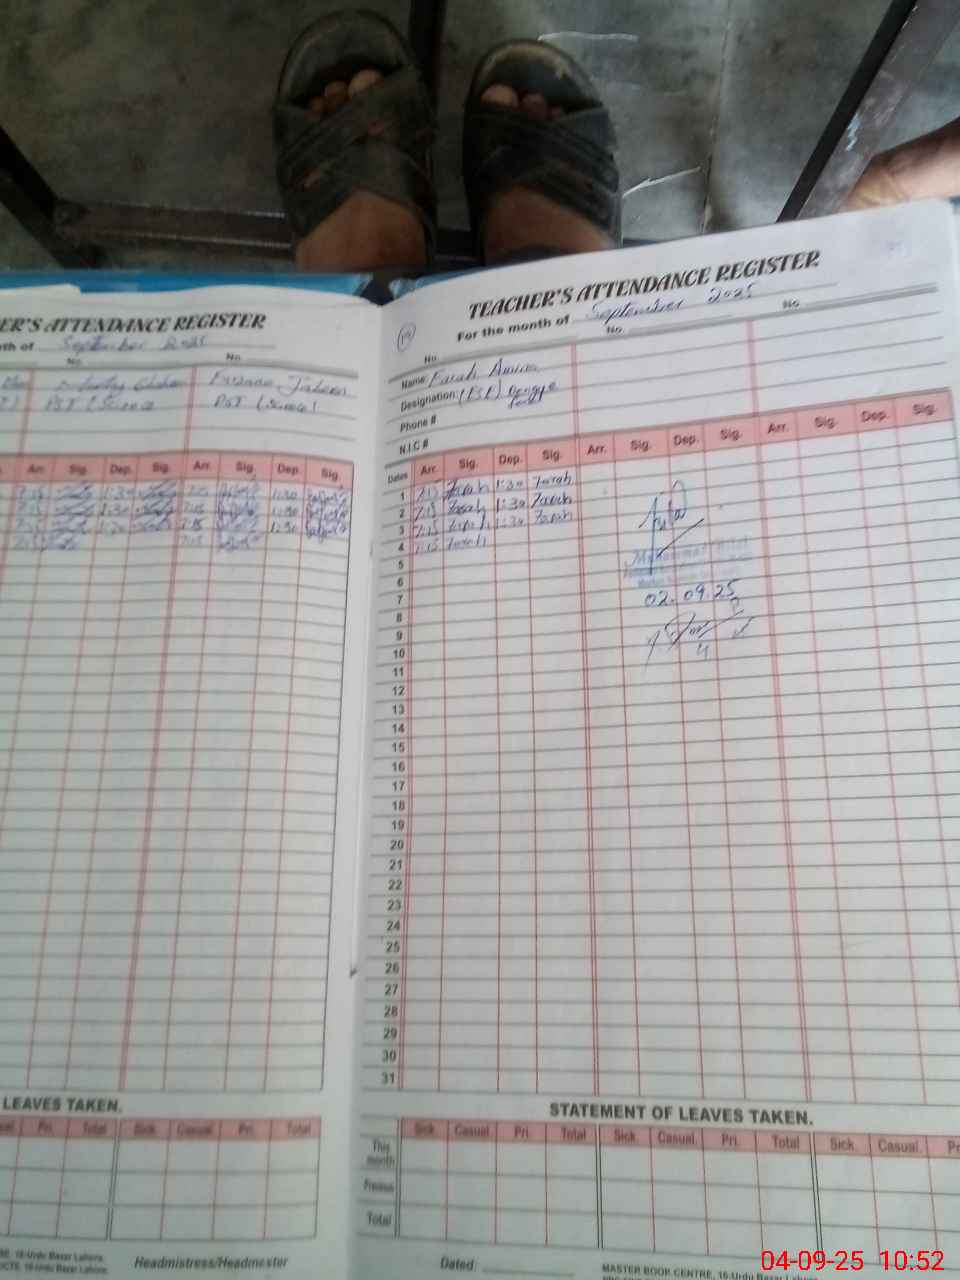 ER'S ATTENDANCE REGISTER
th of September 2025
No. No.
PST (Science PST (Science)
Arr. Sig. Dep. Sig. Arr. Sig. Dep. Sig.
7:15 1:30 7:15 1:30
7:15 1:30 7:15 1:30
7:15 1:30 7:15 1:30
7:15 7:15
LEAVES TAKEN.
Pri. Total Sick. Casual. Pri. Total
Headmistress/Headmaster
TEACHER'S ATTENDANCE REGISTER
For the month of September 2025
19
No. No. No.
Name: Farah
Designation: (ESE)
Phone #
N.I.C #
Dates Arr. Sig. Dep. Sig. Arr. Sig. Dep. Sig. Arr. Sig. Dep. Sig.
1 7:15 Farah 1:30 Farah
2 7:15 Farah 1:30 Farah
3 7:15 Farah 1:30 Farah
4 7:15 Farah
5
6
7
02.09.25
8
9
10
11
12
13
14
15
16
17
18
19
20
21
22
23
24
25
26
27
28
29
30
31
STATEMENT OF LEAVES TAKEN.
Sick. Casual. Pri. Total Sick. Casual. Pri. Total Sick. Casual. Pr
This month
Previous
Total
Dated:
MASTER BOOK CENTRE, 16-Urdu Bazar Lahore
04-09-25 10:52